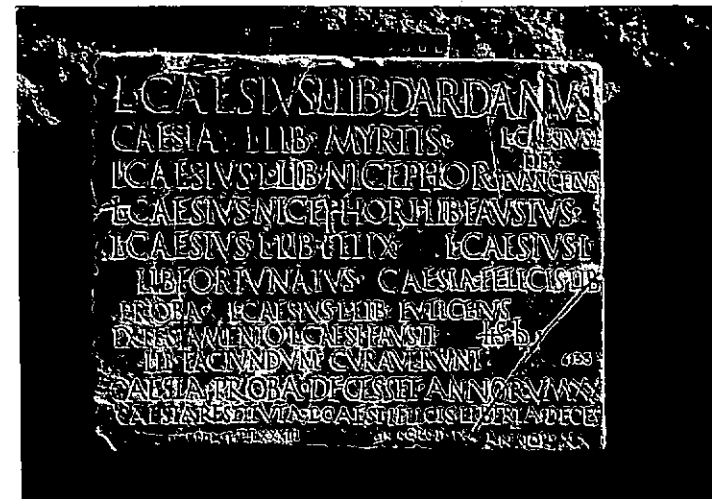 L·CAESIVS·L·LIB·DARDANVS
CAESIA · L·LIB· MYRTIS· L·CAESIVS·L
LIB
L·CAESIVS·L·LIB·NICEPHOR EVANGELVS
L·CAESIVS·NICEPHORI·LIB·FAVSTVS·
L·CAESIVS·L·LIB·FELIX· L·CAESIVS·L·
LIB·FORTVNATVS· CAESIA·FELICIS·LIB
PROBA· L·CAESIVS·L·LIB·
EX·TESTAMENTO·L·CAESI·FAVSTI
LIB·FACIVNDVM·CVRAVERVNT
CAESIA·PROBA·DECESSIT·ANNORVM·XX
CAESIA·RESTITVTA·L·CAESI·FELICIS·LIBERTA·DECES